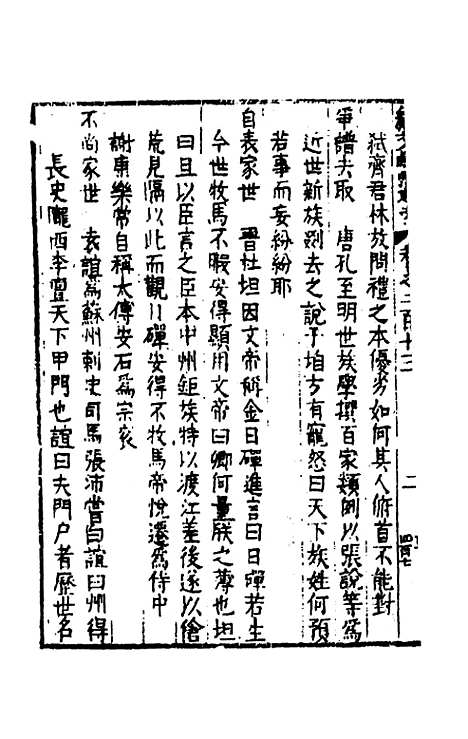 弑齊君林放問禮之本優劣如何其人俯首不能對
爭譜去取　唐孔至明世族學撰百家類例以張說等爲
近世新族剟去之說子垍方有寵怒曰天下族姓何預
若事而妄紛紛耶
自表家世　晉杜坦因文帝稱金日磾進言曰日磾若生
今世牧馬不暇安得顯用文帝曰卿何量朕之薄也坦
曰且以臣言之臣本中州鉅族特以渡江差後遂以傖
荒見隔以此而觀日磾安得不牧馬帝悅遷爲侍中
謝康樂常自稱太傅安石爲宗袞
不尚家世　袁誼爲蘇州刺史司馬張沛嘗白誼曰州得
長史隴西李亶天下甲門也誼曰夫門戸者歷世名
卷之二百十三
二